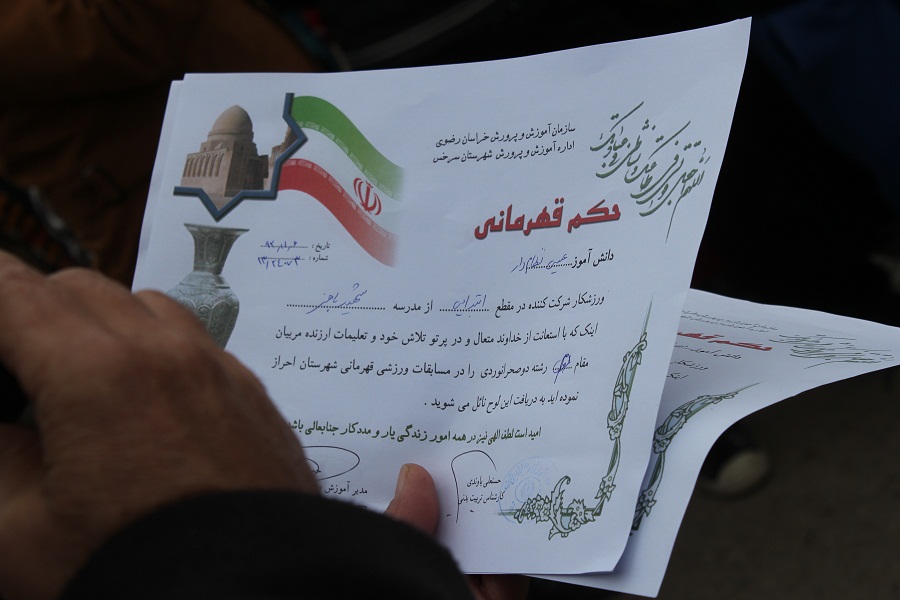 سازمان آموزش و پرورش خراسان رضوی
اداره آموزش و پرورش شهرستان سرخس
حکم قهرمانی
تاریخ :
شماره :
دانش آموز
ورزشکار شرکت کننده در مقطع ابتدایی از مدرسه شهید باهنر
اینک که با استعانت از خداوند متعال و در پرتو تلاش خود و تعلیمات ارزنده مربیان
مقام رشته دوصحرانوردی را در مسابقات ورزشی قهرمانی شهرستان احراز
نموده اید به دریافت این لوح نائل می شوید .
امید است لطف الهی نیز در همه امور زندگی یار و مددکار جنابعالی باشد
حسنعلی باوندی
کارشناس تربیت بدنی
مدیر آموزش
حکم قهر
ورزشکار
اینک